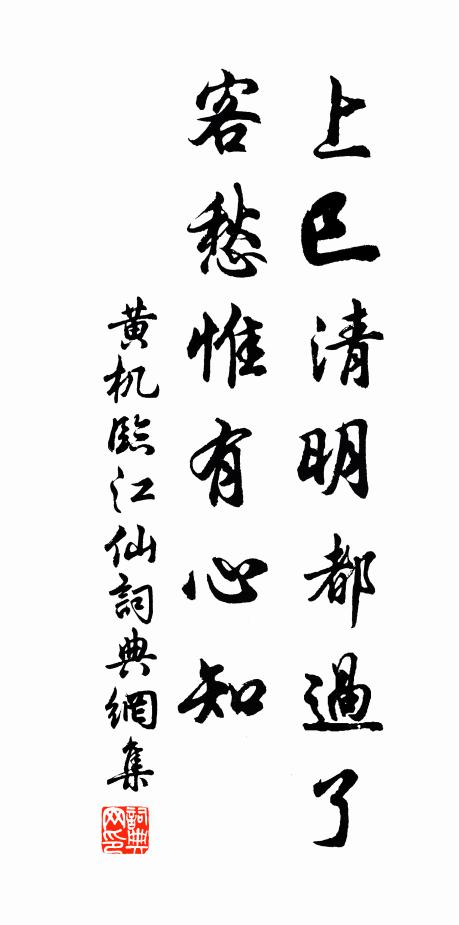 上巳清明都過了
客愁惟有心知
黃机臨江仙詞典網集
詞典网印